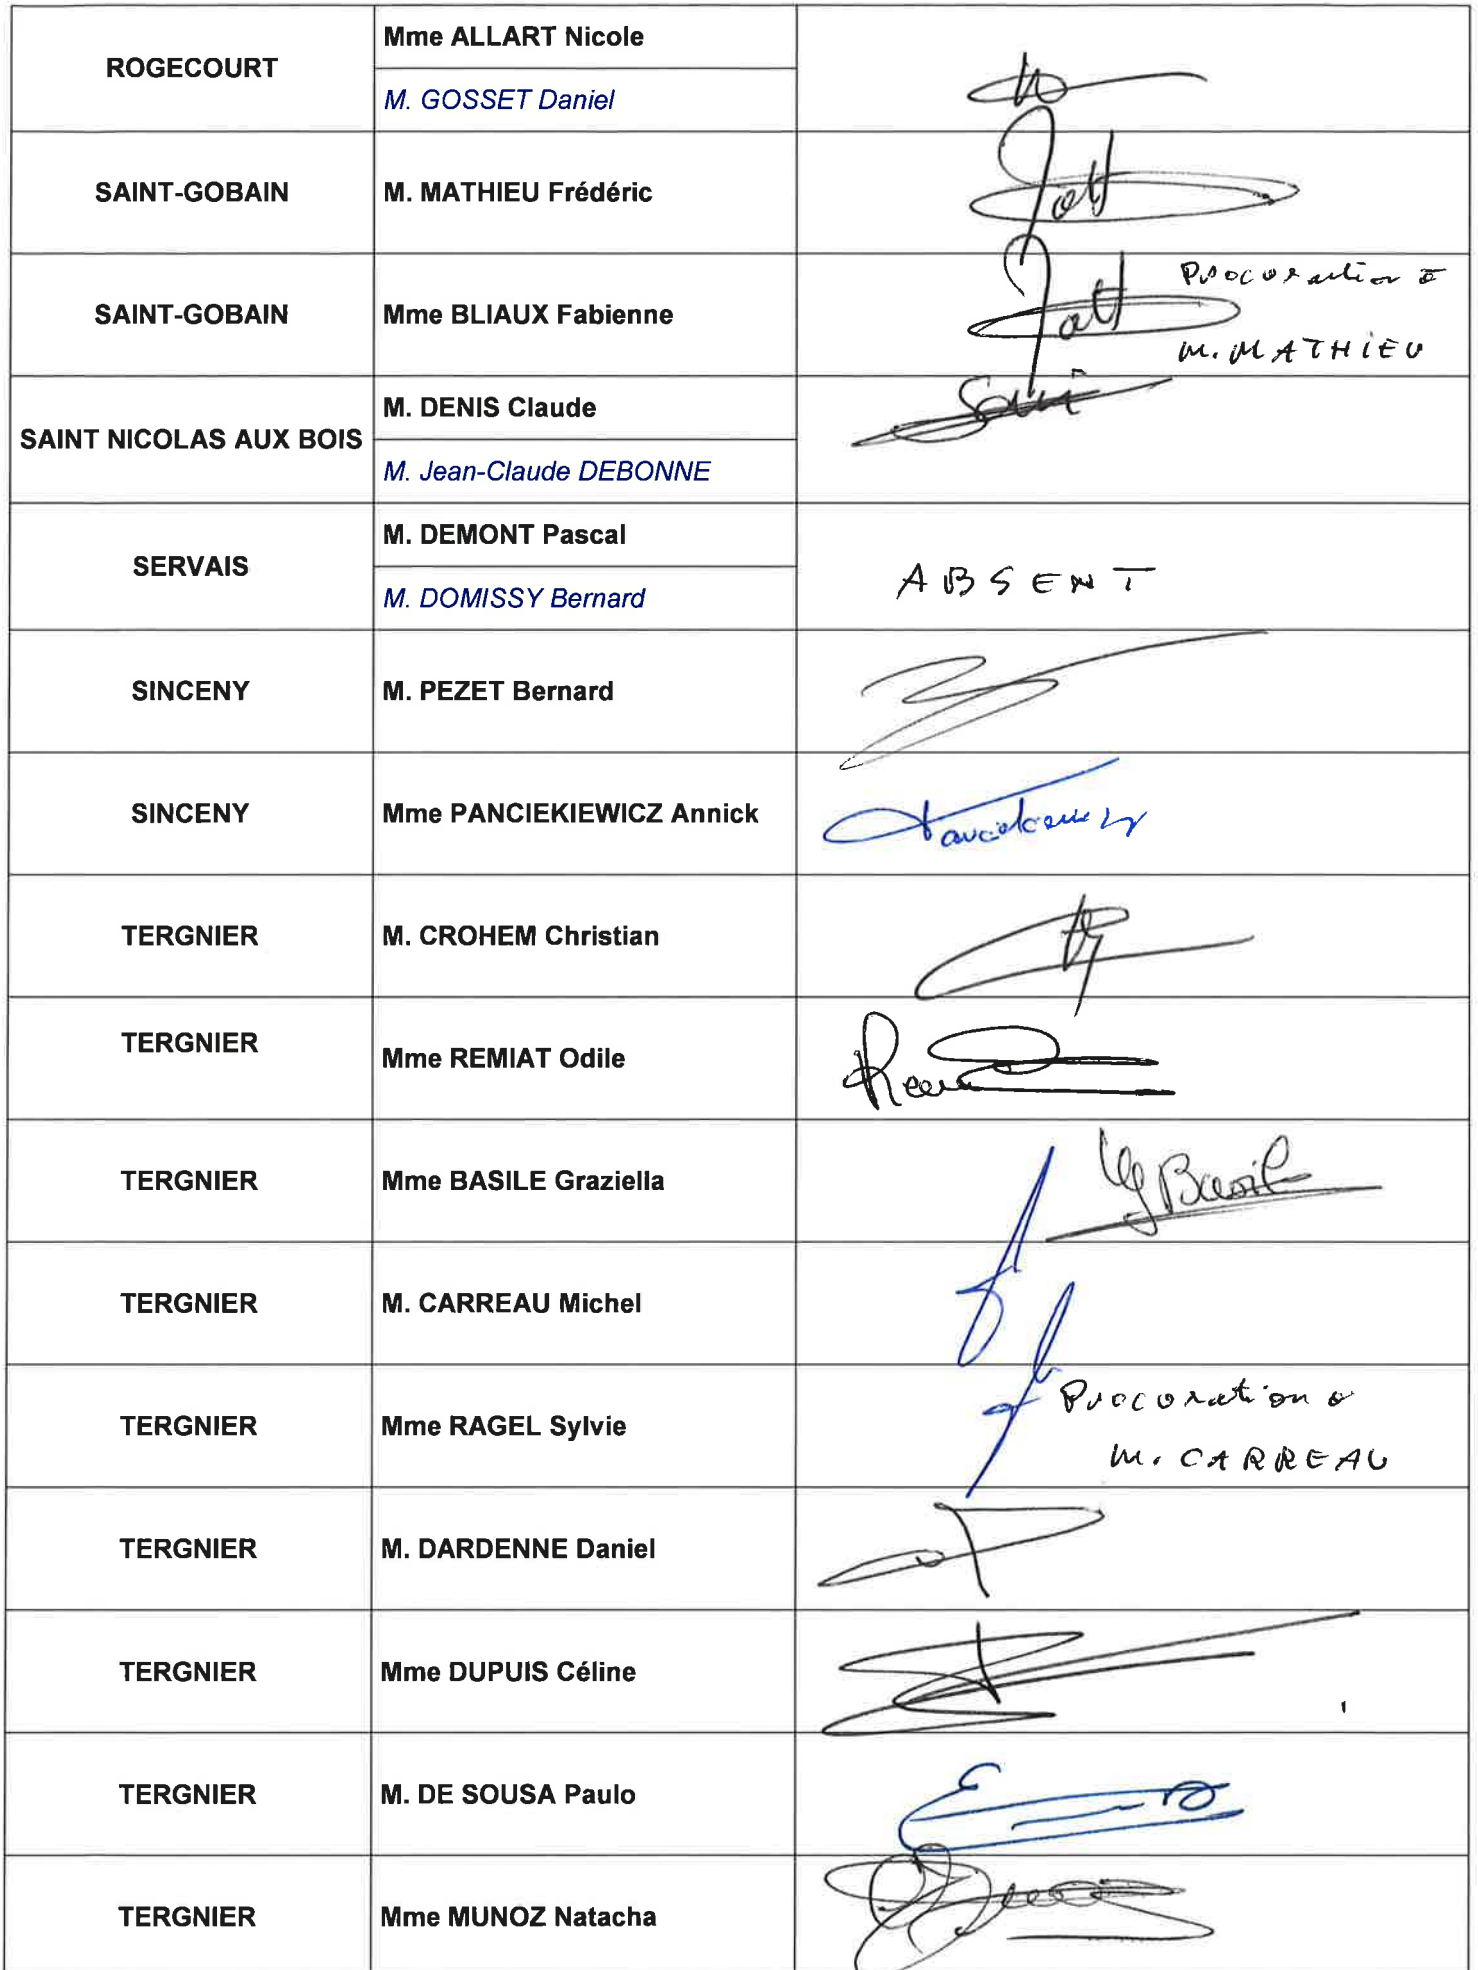 ROGECOURT
Mme ALLART Nicole
M. GOSSET Daniel
SAINT-GOBAIN
M. MATHIEU Frédéric
SAINT-GOBAIN
Mme BLIAUX Fabienne
Procuration à
M. MATHIEU
SAINT NICOLAS AUX BOIS
M. DENIS Claude
M. Jean-Claude DEBONNE
SERVAIS
M. DEMONT Pascal
M. DOMISSY Bernard
ABSENT
SINCENY
M. PEZET Bernard
SINCENY
Mme PANCIEKIEWICZ Annick
TERGNIER
M. CROHEM Christian
TERGNIER
Mme REMIAT Odile
TERGNIER
Mme BASILE Graziella
TERGNIER
M. CARREAU Michel
TERGNIER
Mme RAGEL Sylvie
Procuration à
M. CARREAU
TERGNIER
M. DARDENNE Daniel
TERGNIER
Mme DUPUIS Céline
TERGNIER
M. DE SOUSA Paulo
TERGNIER
Mme MUNOZ Natacha